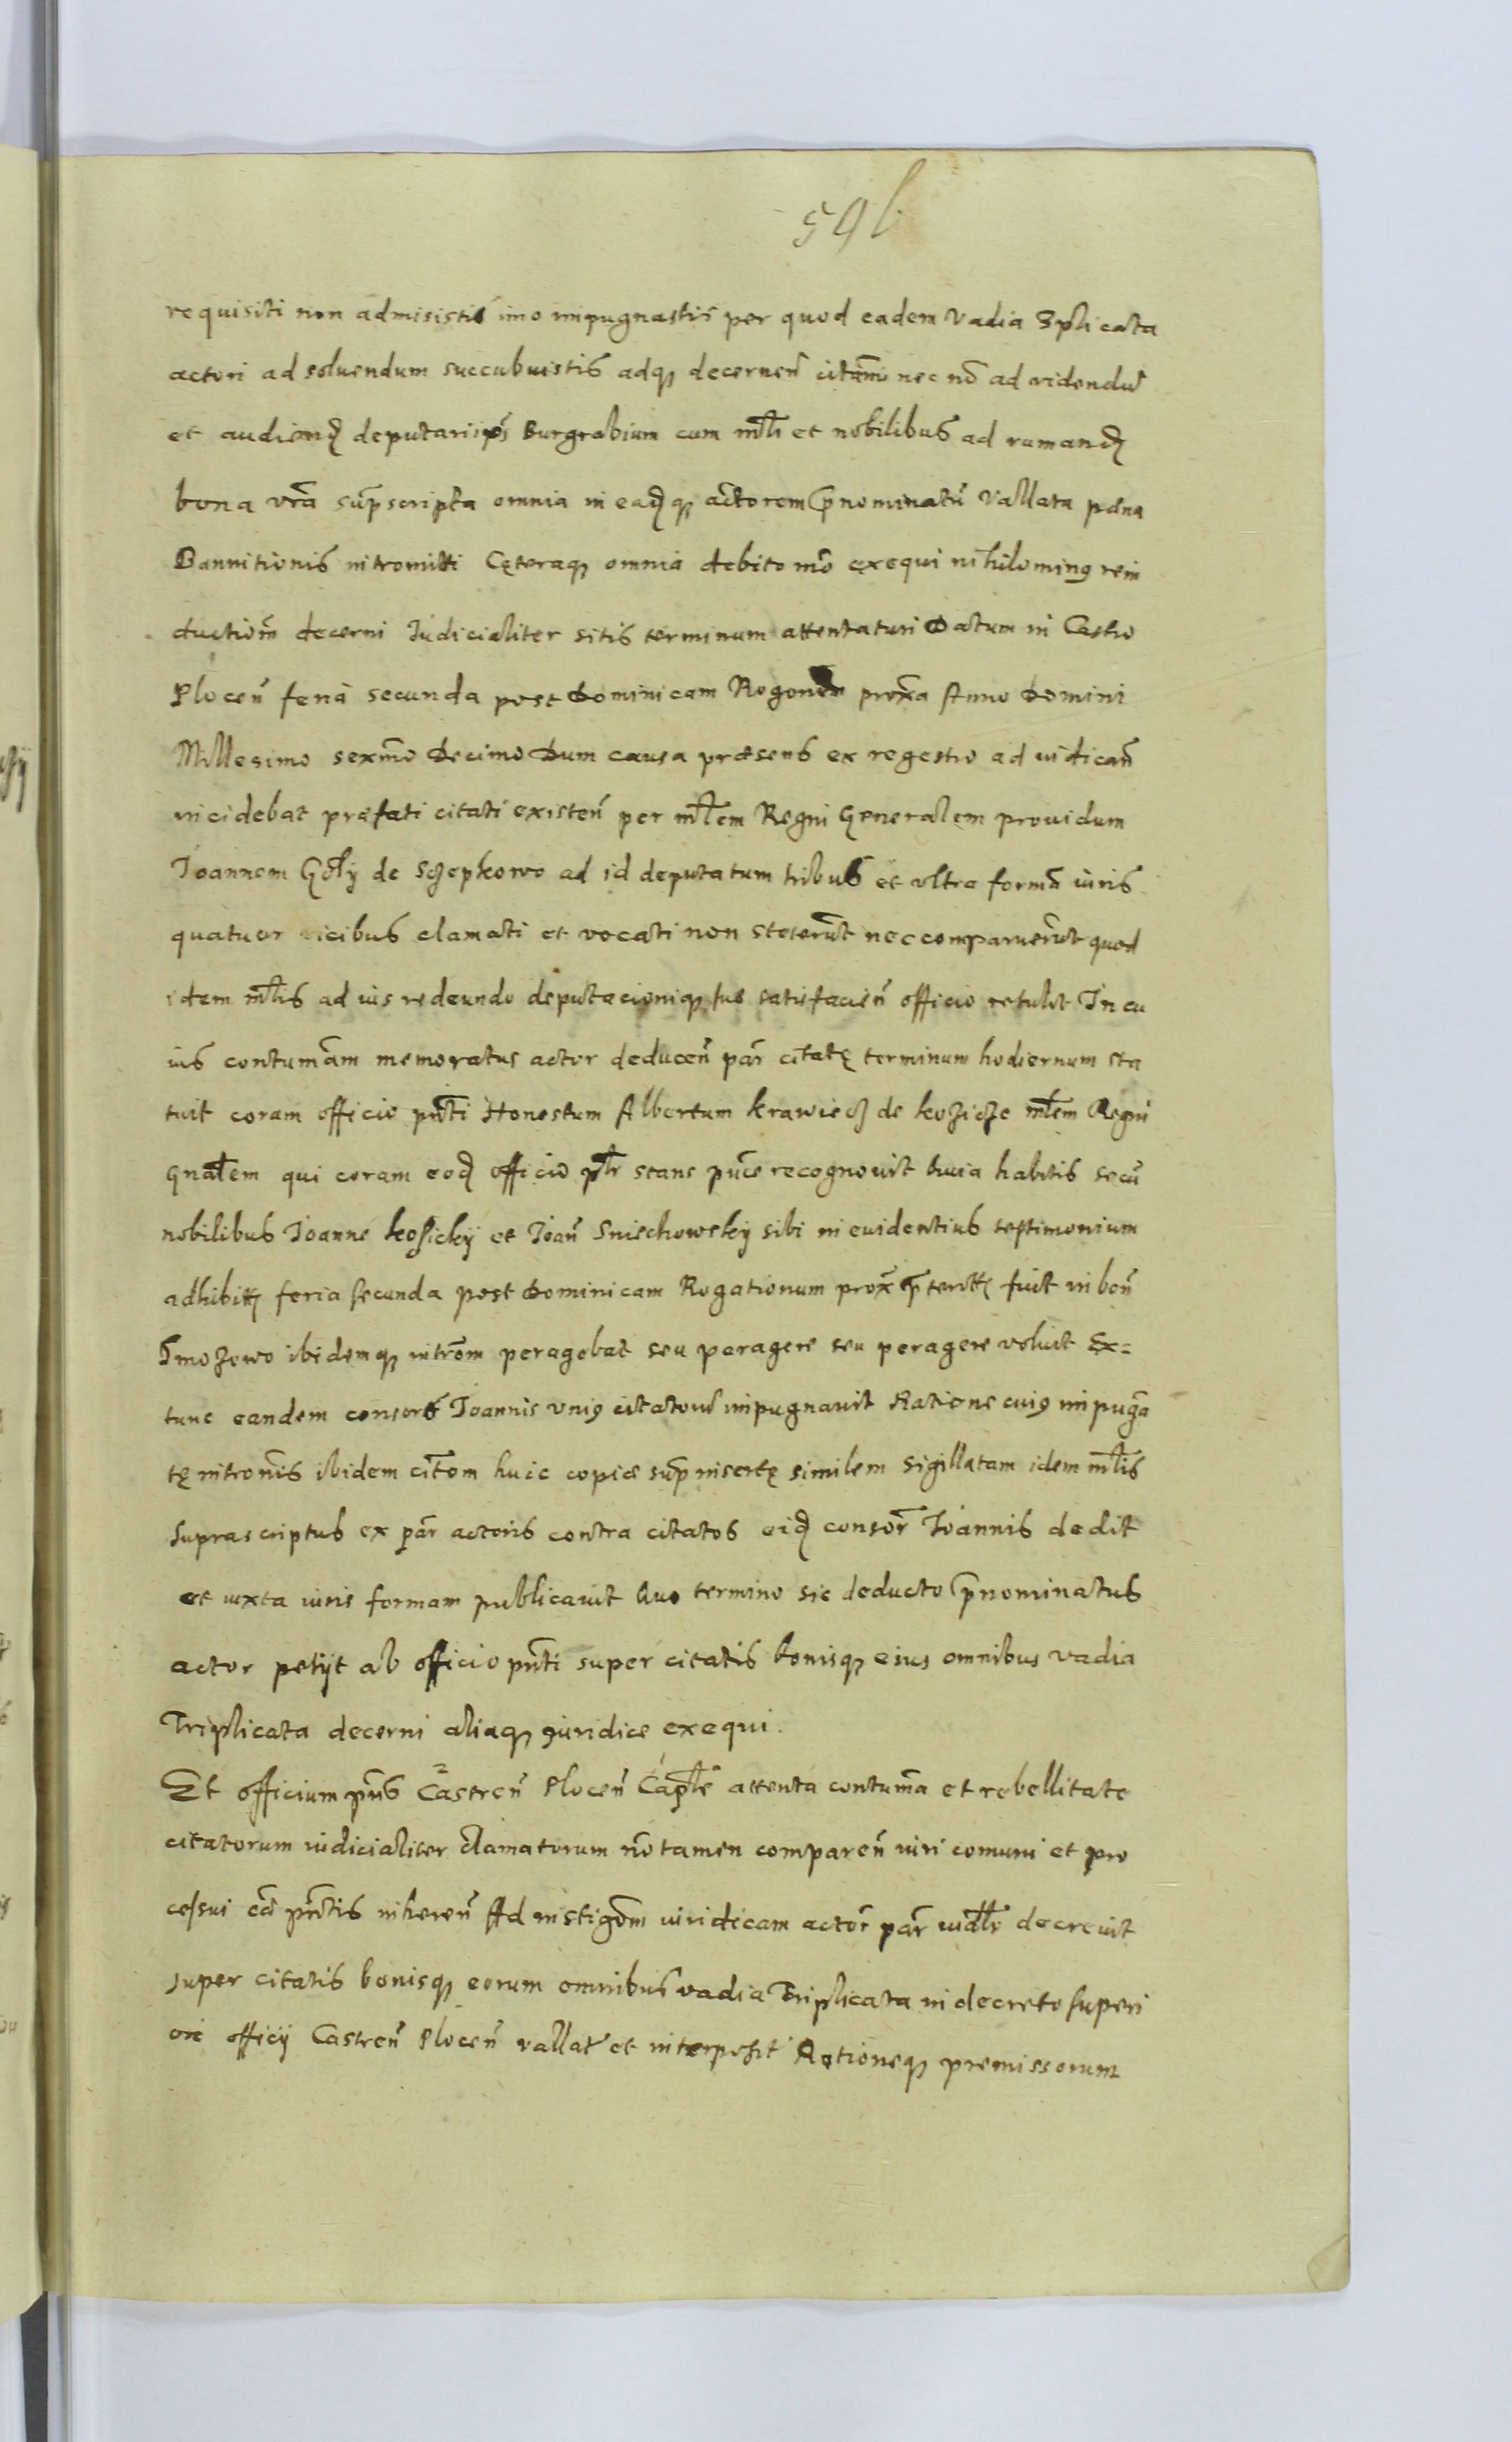 596
requisiti non admisistis imo impugnastis per quod eadem vadia 3plicata
actori ad soluendum succubuistis adq₃ decernen̄ citam̄ nec nō ad videndū
et audiend₃ deputari ip̄s Burgrabium cum mīlti et nobilibus ad rumand₃
bona vrā suprascripta omnia in ead₃q₃ actorem p̄nominatū vallata pæna
Bannitionis intromitti Cęteraq₃ omnia debito mō exequi nihilomin9 rem
ductiōm decerni Judicialiter sitis terminum attentaturi Datum in Castro
Plocen̄ feria secunda post Dominicam Rogonum proxa Anno Domini
Millesimo sexmō Decimo Dum causa præsens ex regestro ad iudican̄
incidebat præfati citati existen̄ per mīltem Regni Generalem prouidum
Joannem Goły de Sczepkowo ad id deputatum tribus et vltra formā iuris
quatuor vicibus clamati et vocati non steterūt nec comparuerūt quod
idem mīlis ad ius redeundo deputacioniq₃ suæ satisfacien̄ officio retulit In cu
ius contumām memoratus actor deducen̄ par̄ citatę terminum hodiernum sta
tuit coram officio pn̄ti Honestum Albertum krawiecz de kozicze mīltem Regni
Gnālem qui coram eod₃ officio pl̄r stans pn̄s recognouit quia habitis secū
nobilibus Joanne kosicky et Joan̄ Sniechowsky sibi in euidentius testimonium
adhibit₃ feria secunda post Dominicam Rogationum prox̄ p̄terit₃ fuit in bon̄
Smozewo ibidemq₃ intrōm peragebat seu peragere seu peragere voluit Ex=
tunc eandem consors Joannis vni9 citatorū impugnauit Ratione cui9 impugā
tę intronis ibidem citōm huic copiæ supra insertę similem sigillatam idem mīlis
suprascriptus ex par̄ actoris contra citatos eid₃ consor̄ Joannis dedit
et iuxta iuris formam publicauit Quo termino sic deducto p̄nominatus
actor petijt ab officio pn̄ti super citatis bonisq₃ eius omnibus vadia
Triplicata decerni aliaq₃ iuridice exequi.
Et officium pn̄s Castren̄ Plocen̄ Capłe attenta contumā et rebellitate
citatorum iudicialiter clamatorum nō tamen comparen̄ iuri comuni et pro
cessui cā pn̄tis inheren̄ Ad instigōm iuridicam actor̄ par̄ iudlr̄ decreuit
super citatis bonisq₃ eorum omnibus vadia Triplicata in decreto superi
ori officij Castren̄ Plocen̄ vallat̄ et interposit̄ Rationeq₃ premissorum